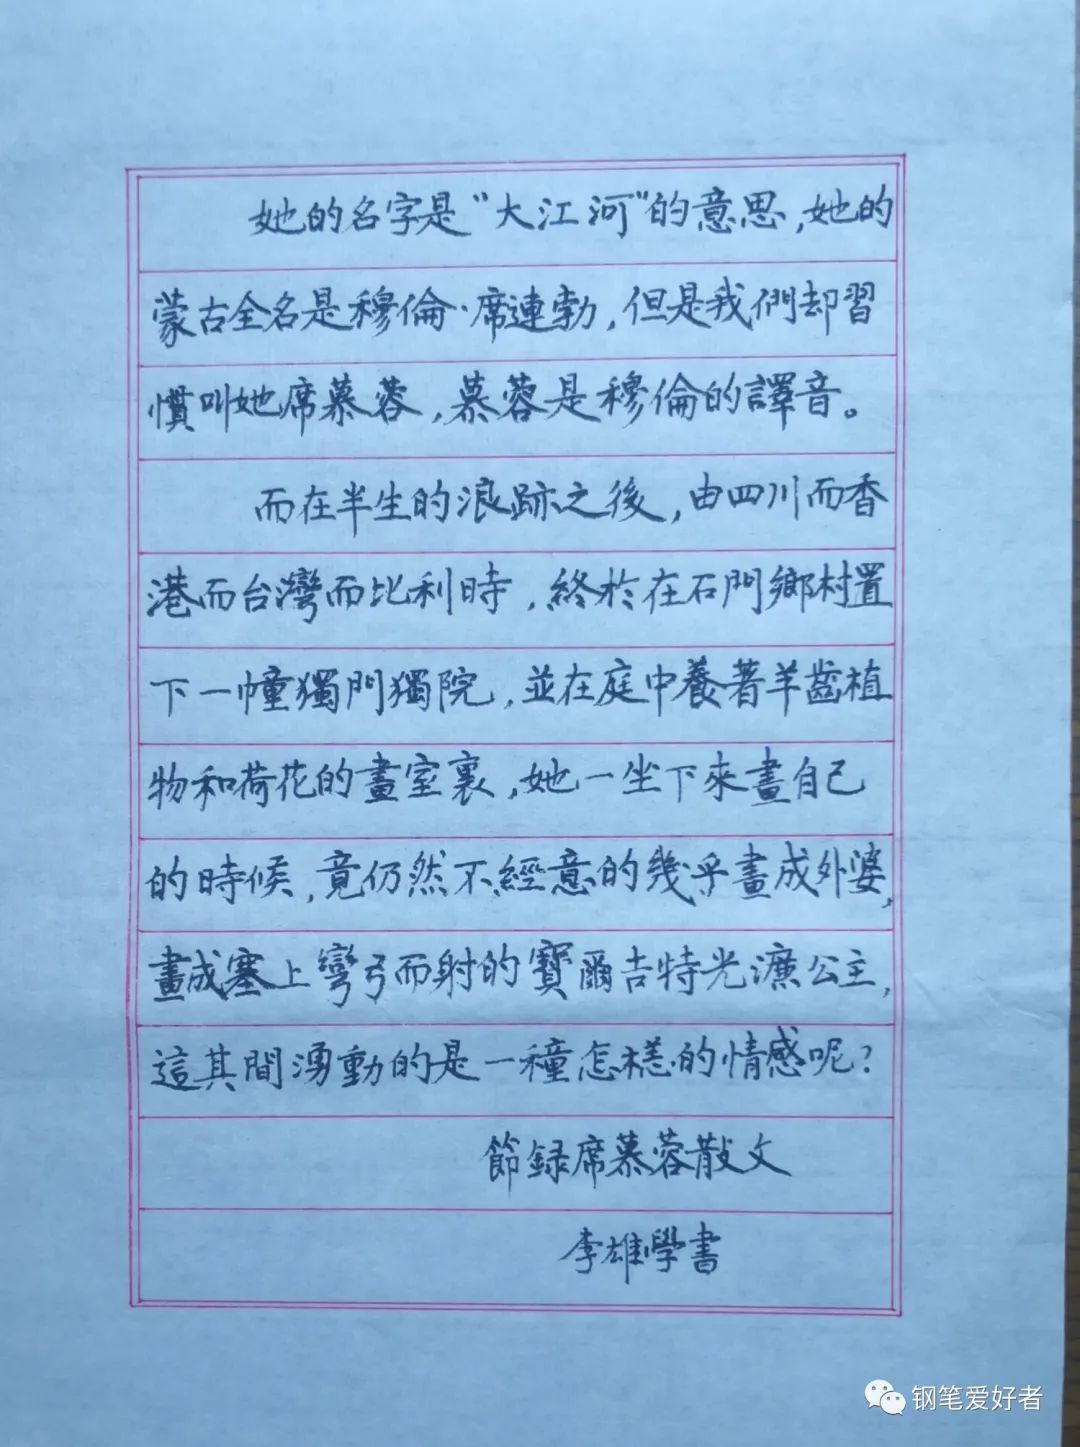 她的名字是“大江河”的意思,她的
蒙古全名是穆倫·席連勃,但是我們却習
慣叫她席慕蓉,慕蓉是穆倫的譯音。
而在半生的浪跡之後,由四川而香
港而台灣而比利時,終於在石門鄉村置
下一幢獨門獨院,並在庭中養著羊齒植
物和荷花的畫室裏,她一坐下來畫自己
的時候,竟仍然不經意的幾乎畫成外婆,
畫成塞上彎弓而射的寶爾吉特光濂公主,
這其間湧動的是一種怎樣的情感呢?
節録席慕蓉散文
李雄學書
钢笔爱好者